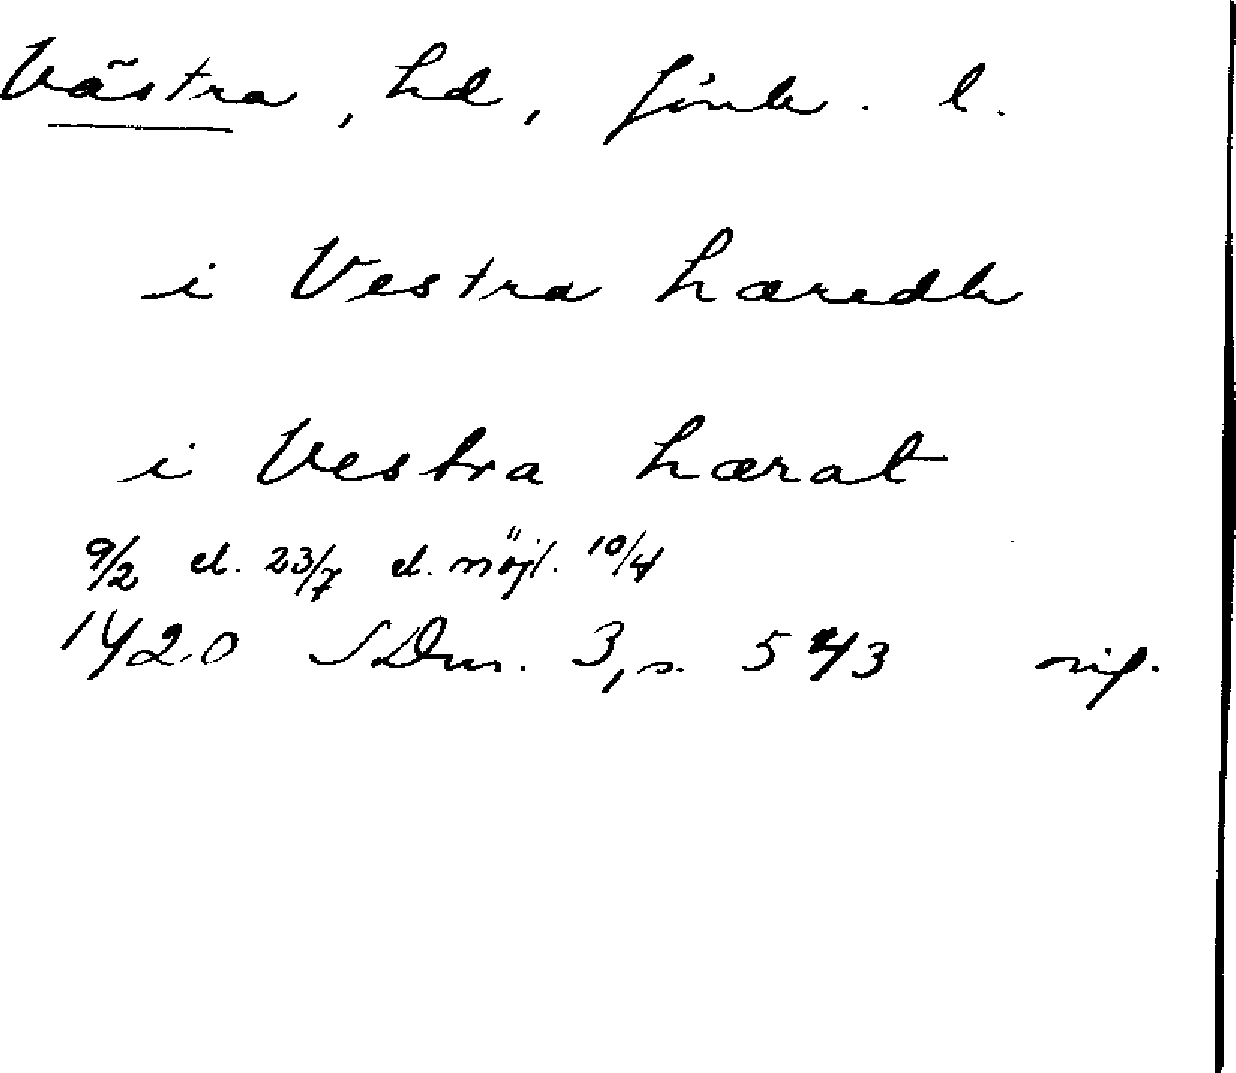 Västra, hd, Jönk. l.
i Vestra hæredh
i Vestra hærat
9/2 el. 23/7 el. möjl. 10/4
1420 SDns. 3, s. 543